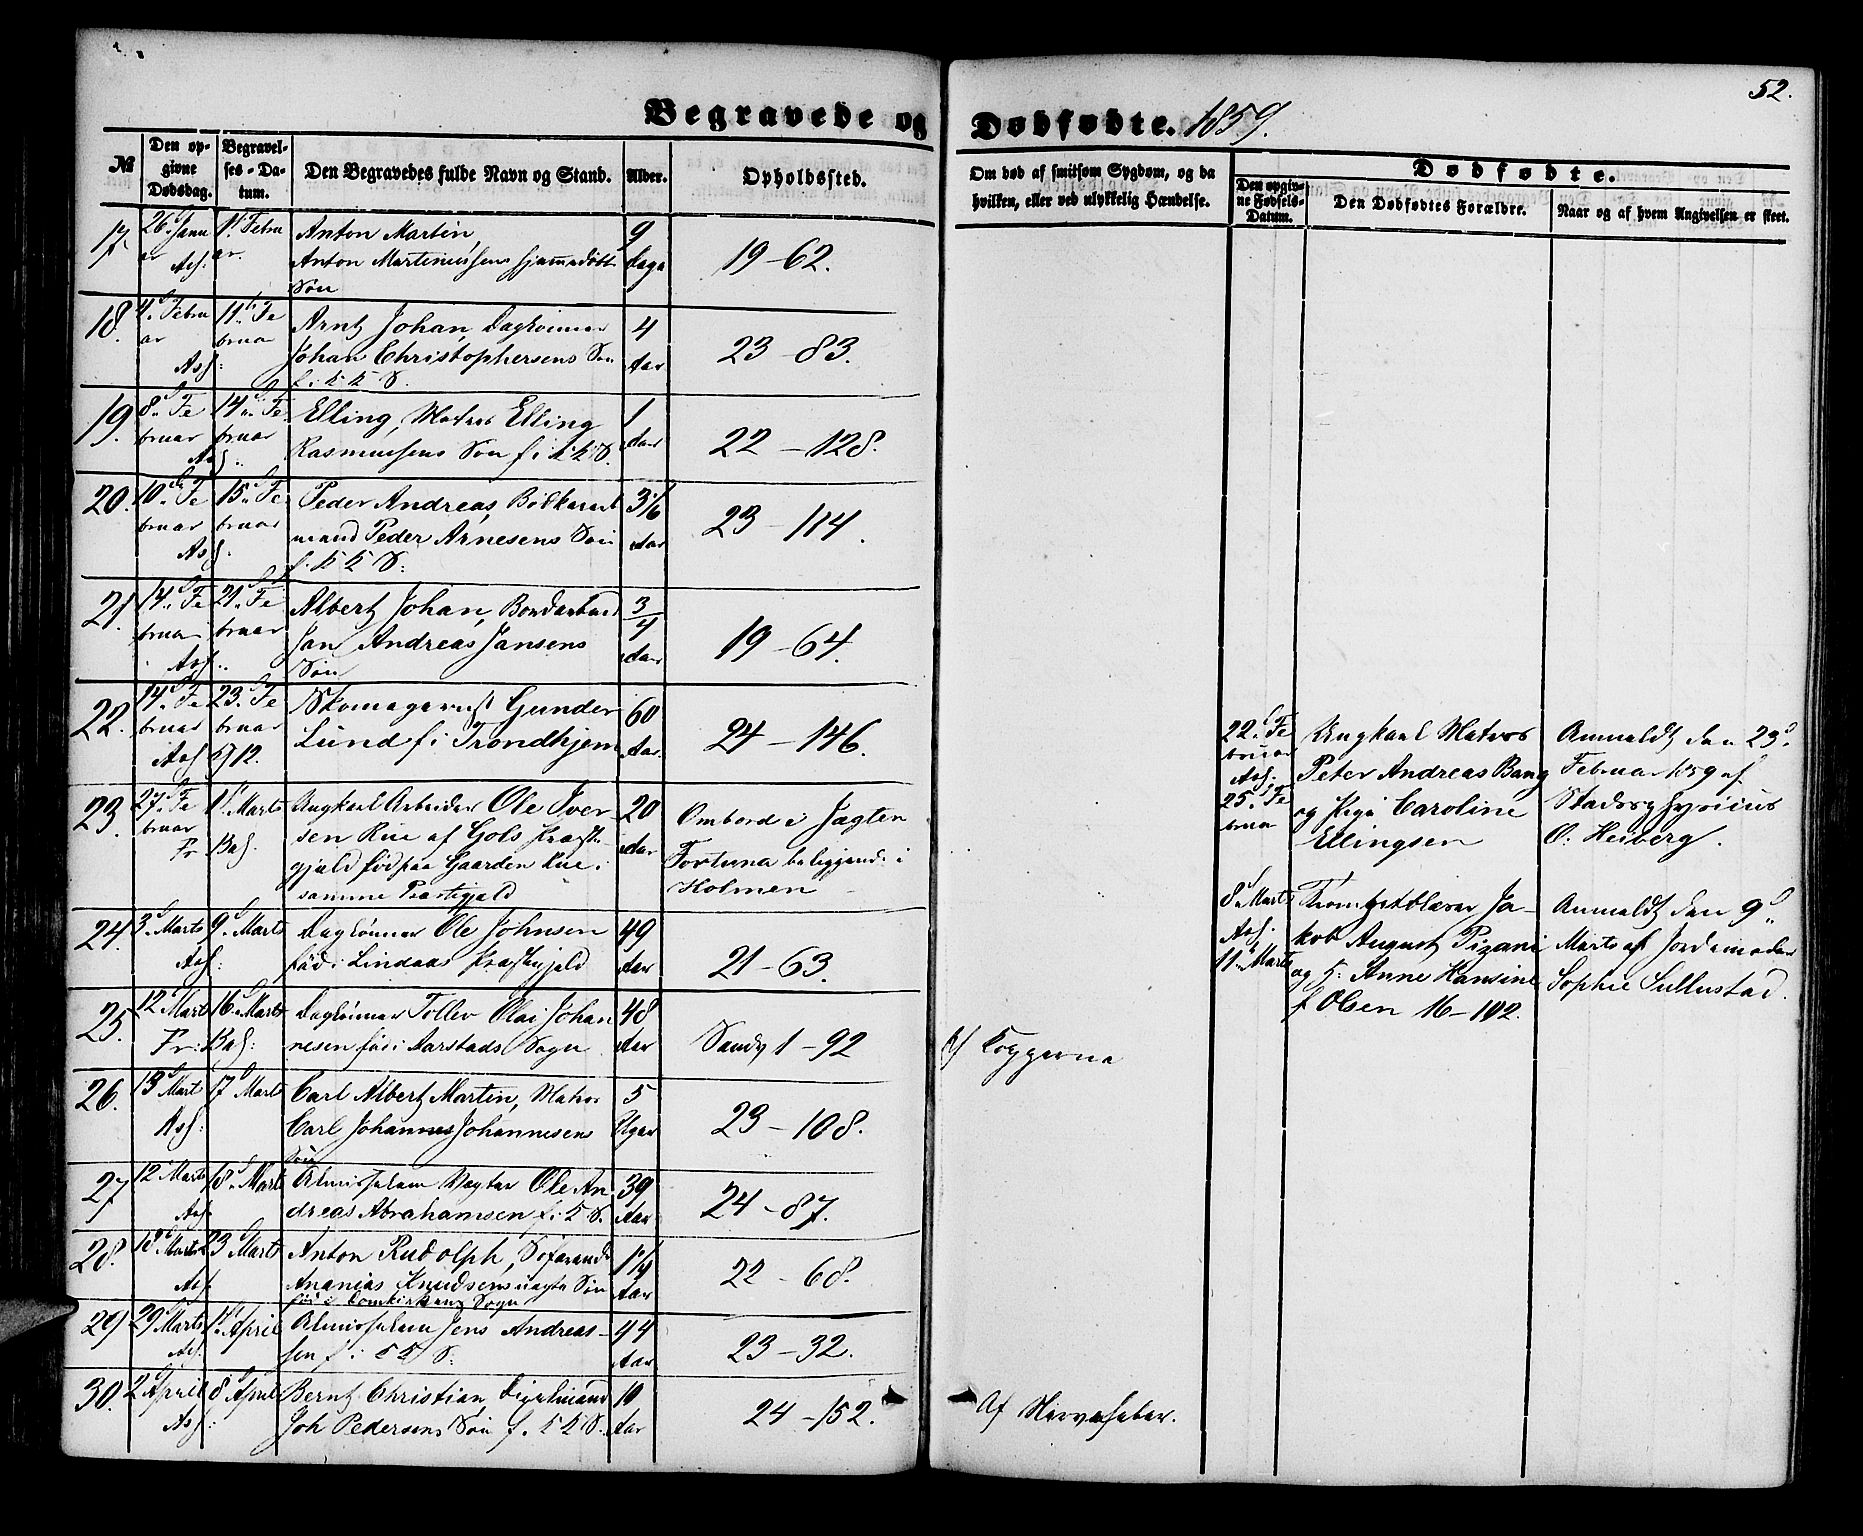 52.
Begravede og Dødfødte. 1859.
№
Den opgivne Dødsdag.
Begravelses-Datum.
Den Begravedes fulde Navn og Stand.
Alder.
Opholdssted.
Om død af smitsom Sygdom, og da
hvilken, eller ved ulykkelig Hændelse.
Dødfødte.
Den opgivne Fødsels-Datum.
Den Dødfødtes Forældre.
Naar og af hvem Angivelsen er skeet.
17. 26. Janu 1. Febru Anton Martin 9
ar ar. Anton Martinussens Dage 19-62.
Søn
18. 4. Febru 11. Fe Arnt Johan, Dagleinner 4
ar bruar Johan Christophersens Søn Aar 23-83.
Asf: f. i K K S.
19. 8. Fe 14. Fe Elling, Matros Elling 1
bruar bruar Rasmussens Søn f i K: K: S. Aar 22-128.
20. 10. Fe 15. Fe Peder Andreas,
bruar bruar mand Peder Arnesens Søn Aar 23-114.
Asf. f. K K S:
21. 14. Fe 21. Fe Albert Johan, 3/4
bruar bruar Jan Andreas Jansens Aar 19-64.
Søn
22. 14. Fe 23. Fe Skomagersv Gunder 60
bruar bruar Lund f i Trondhjem Aar. 24-146.
23. 27. Fe 1. Marts Ungkarl Arbeider Ole Iver 20 Ombord i Jagten
bruar sen Rue af Gols Præste Aar Fortuna beliggende i
Fr. Bas. gjæld født paa Gaarden Rue i Holmen
samme Præstegjæld
24. 3. Marts 9. Marts Daglønner Ole Johnsen 49
Asf: født i Lindaas Præstegjæld Aar 21-63.
25. 12 Marts 16. Marts Daglønner Tollev Olai Johan 48
Fr: Bas: nesen fød i Aarstads Sogn Aar Sandv 1-92
a) Koppperne
26. 13 Mart 17 Marts Carl Albert Martin, Matros 5
Asf: Carl Johannes Johannesens Uger 23-108.
Søn
27 12 Marts 18. Marts Almisselem Vægter Ole An 39
Asf. dreas Abrahamsen f. i. K S. Aar 24-87.
28. 18. Marts 23 Marts Anton Rudolph, 1 1/4
Asf Ananias Knudsens uægte Søn Aar 22-68.
fød i Domkirkens Sogn
29 29 Marts 1. April Almisselem Jens Andreas- 44
Asf. sen f. i K K S: Aar 23-32.
30. 2 April 8 April Bernt Christian, 10
Asf: Joh Pedersens Søn f. K K S. Aar 24-152.
Af Nervefeber.
22. Fe Ungkarl Matros Anmeldt den 23d.
bruar Peter Andreas Bang Februar 1859 af
25. Fe og Pige Caroline Stadsphysicus
bruar Ellingsen O: Heiberg.
8. Marts Trompetblæser Ja- Anmeldt den 9d.
Asf. kob August Pizani Marts af Jordemoder
11. Marts og H: Anne Hansine Sophie Sullustad.
f Olsen 16-102.